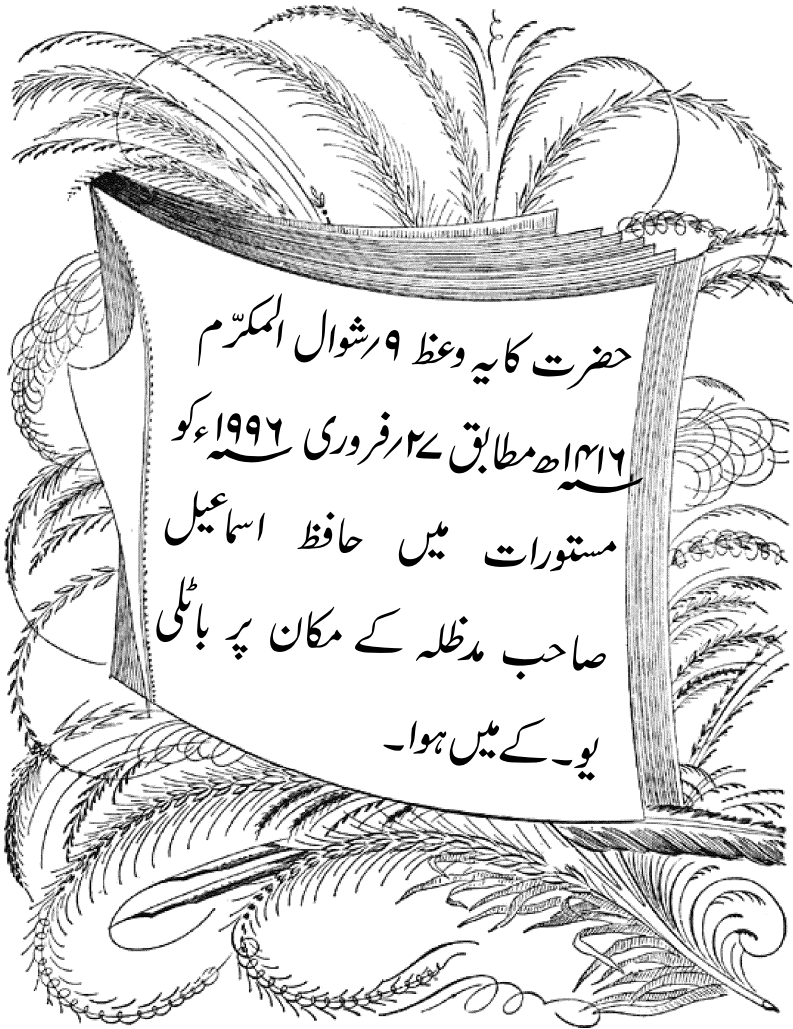 حضرت کا یہ وعظ ۹؍شوال المکرّم
۱۴۱۶؁ھ مطابق ۲۷؍فروری ۱۹۹۶؁ء کو
مستورات میں حافظ اسماعیل
صاحب مدظلہ کے مکان پر باٹلی
یو۔کے میں ہوا۔